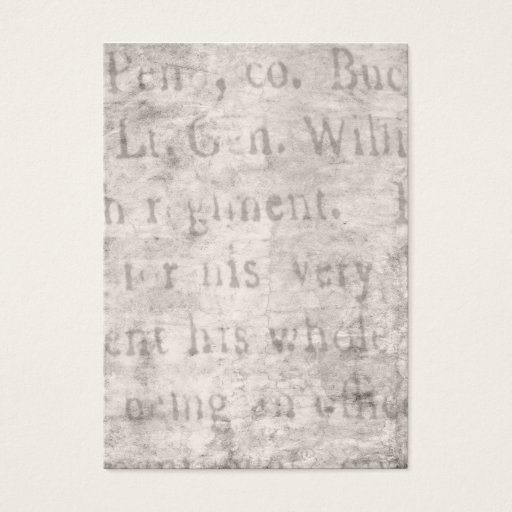 Penn, co. Buc
Lt. Gen. Willi
h regiment.
for his very
ent his whole
being an office